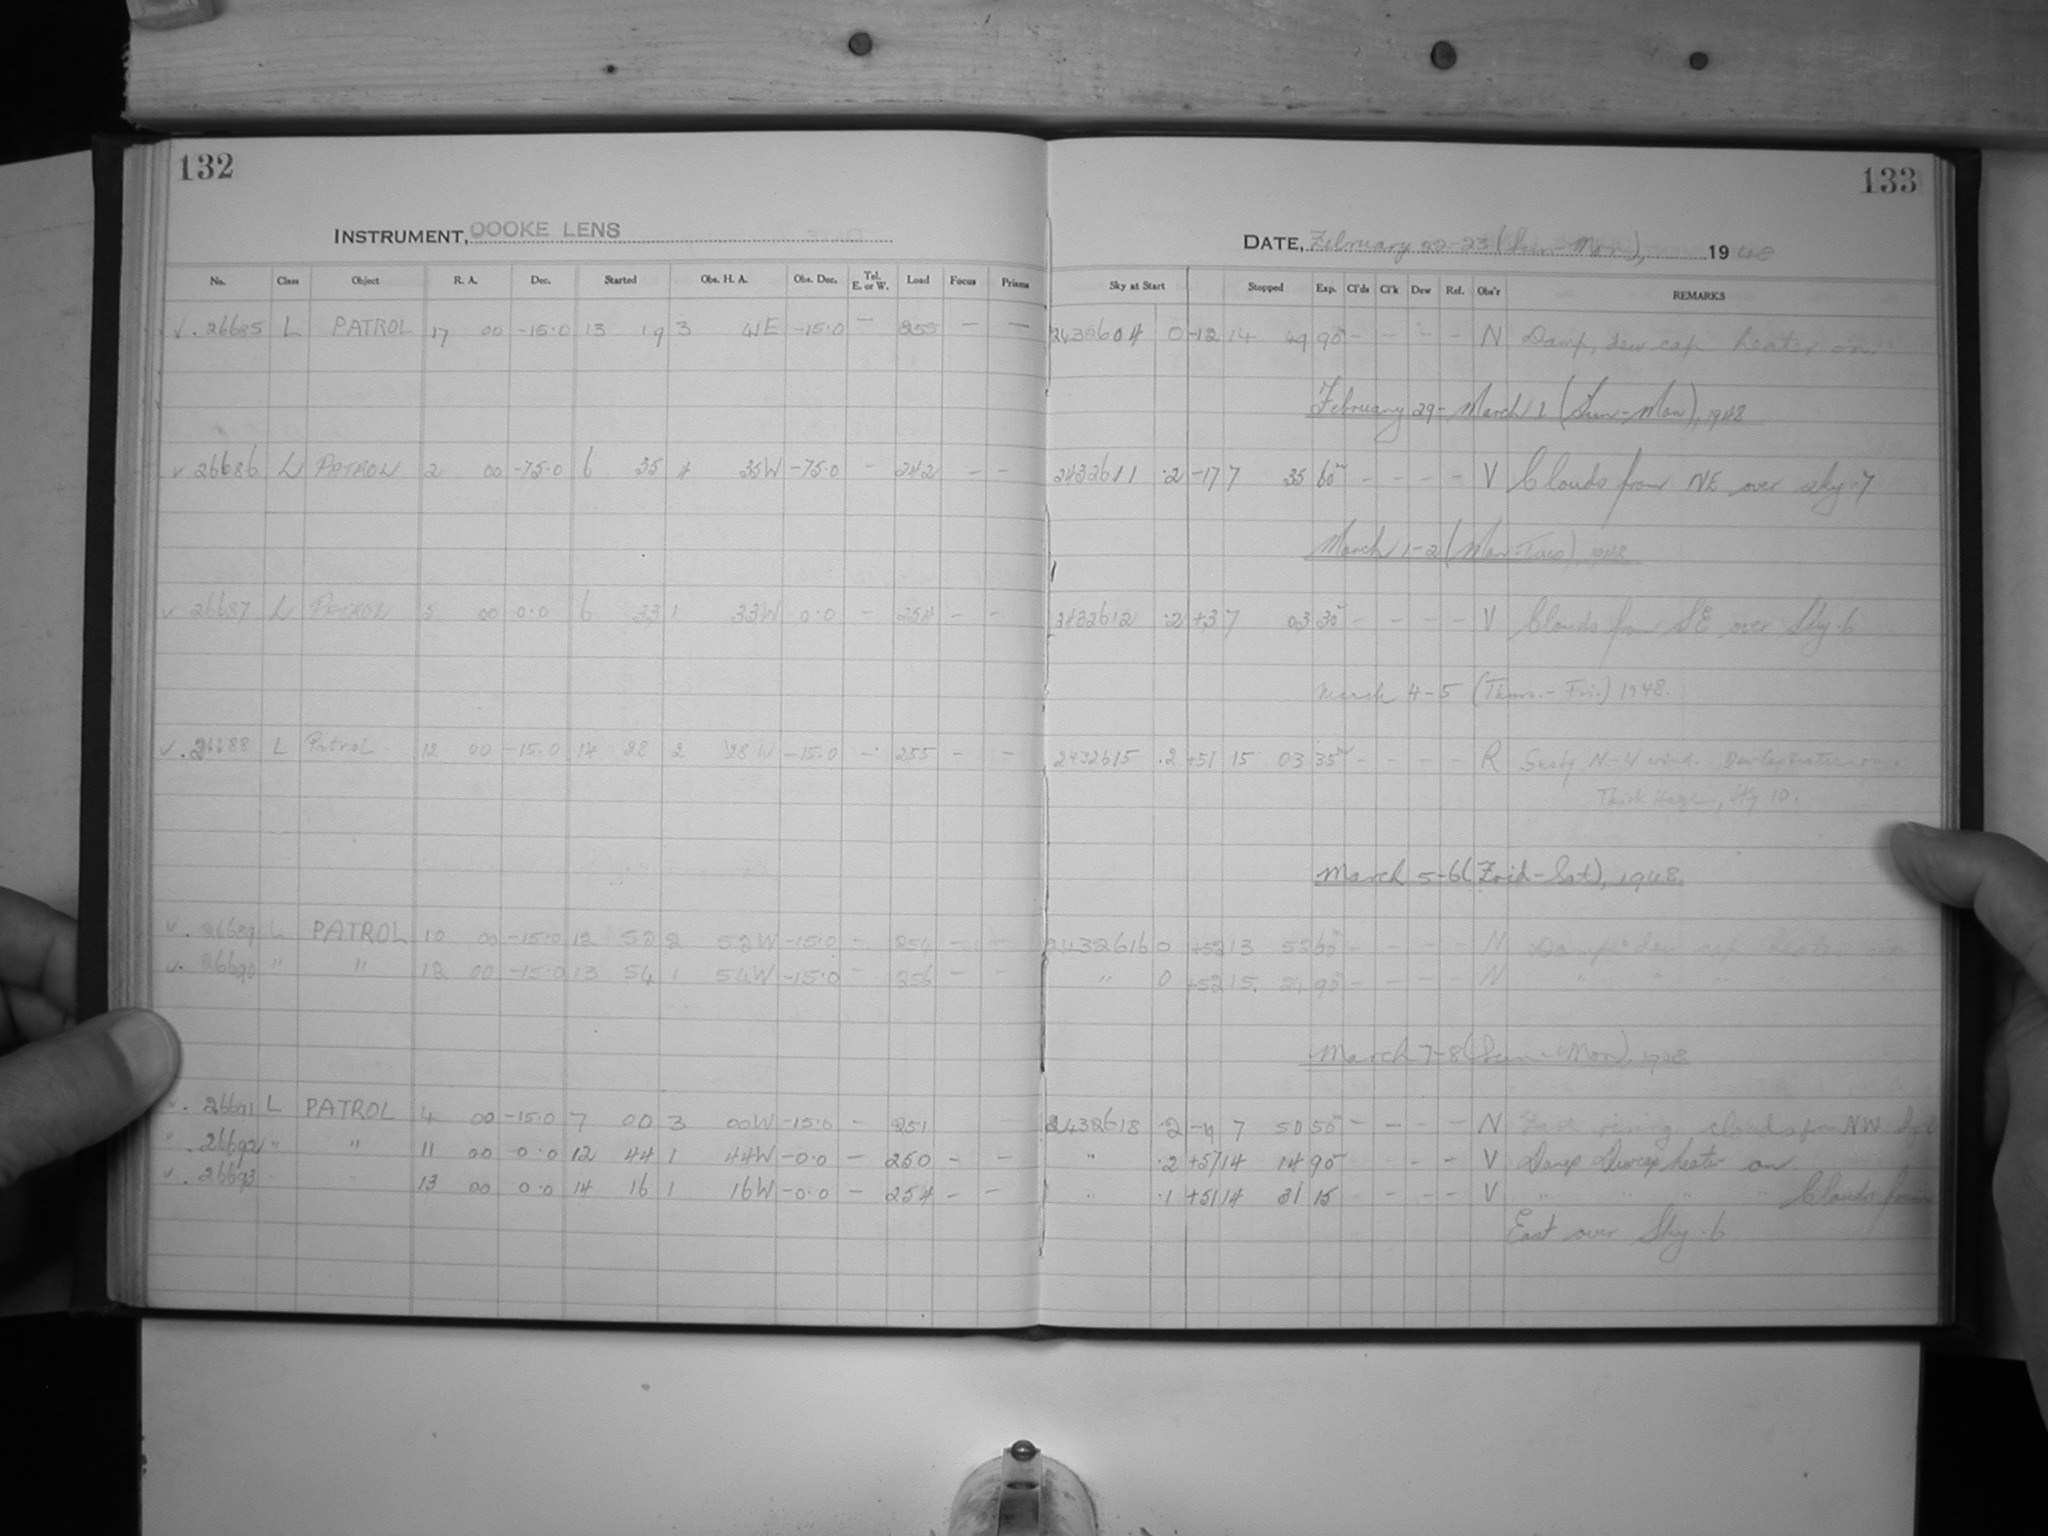 132
INSTRUMENT, COOKE LENS
No. Class Object R. A. Dec. Started Obs. H. A. Obs. Dec. Tel. E. or W. Load Focus Prisms
v. 26685 L PATROL 17 00 -15.0 13 19 3 41E -15.0 - 255 - -
v 26686 L PATROL 2 00 -75.0 6 35 4 35W -75.0 - 242 - -
v 26687 L PATROL 5 00 0.0 6 33 1 33W 0.0 - 254 - -
v. 26688 L Patrol 12 00 -15.0 14 28 2 28W -15.0 - 255 - -
v. 26689 L PATROL 10 00 -15.0 12 52 2 52W -15.0 - 254 - -
v. 26690 " " 12 00 -15.0 13 54 1 54W -15.0 - 256 - -
v. 26691 L PATROL 4 00 -15.0 7 00 3 00W -15.0 - 251
v. 26692 " " 11 00 0.0 12 44 1 44W -0.0 - 250 - -
v. 26693 " " 13 00 0.0 14 16 1 16W -0.0 - 254 - -
133
DATE, February 22-23 (Sun-Mon), 1948
Sky at Start Stopped Exp. Cl'ds Cl'k Dew Ref. Obs'r REMARKS
2432604 0 -12 14 49 90m - - - - N Damp, dew cap heater on.
February 29 - March 1 (Sun-Mon), 1948
2432611 .2 -17 7 35 60m - - - - V Clouds from NE over sky .7
March 1-2 (Mon-Tues), 1948
2432612 .2 +3 7 03 30m - - - - V Clouds from SE over Sky .6
March 4-5 (Thurs.-Fri.) 1948.
2432615 .2 +51 15 03 35m - - - - R Gusty N-W wind. Dew Cap heater on.
Thick Haze, Sky 10.
March 5-6 (Frid-Sat), 1948.
2432616 0 +52 13 52 60m - - - - N Damp dew cap heater on
" 0 +52 15 24 90m - - - - N " " " "
March 7-8 (Sun-Mon), 1948
2432618 .2 -4 7 50 50m - - - - N Fast rising clouds from NW
" .2 +51 14 14 90m - - V Damp Dewcap heater on
" .1 +51 14 31 15 - - - V " " " " Clouds from
East over Sky .6